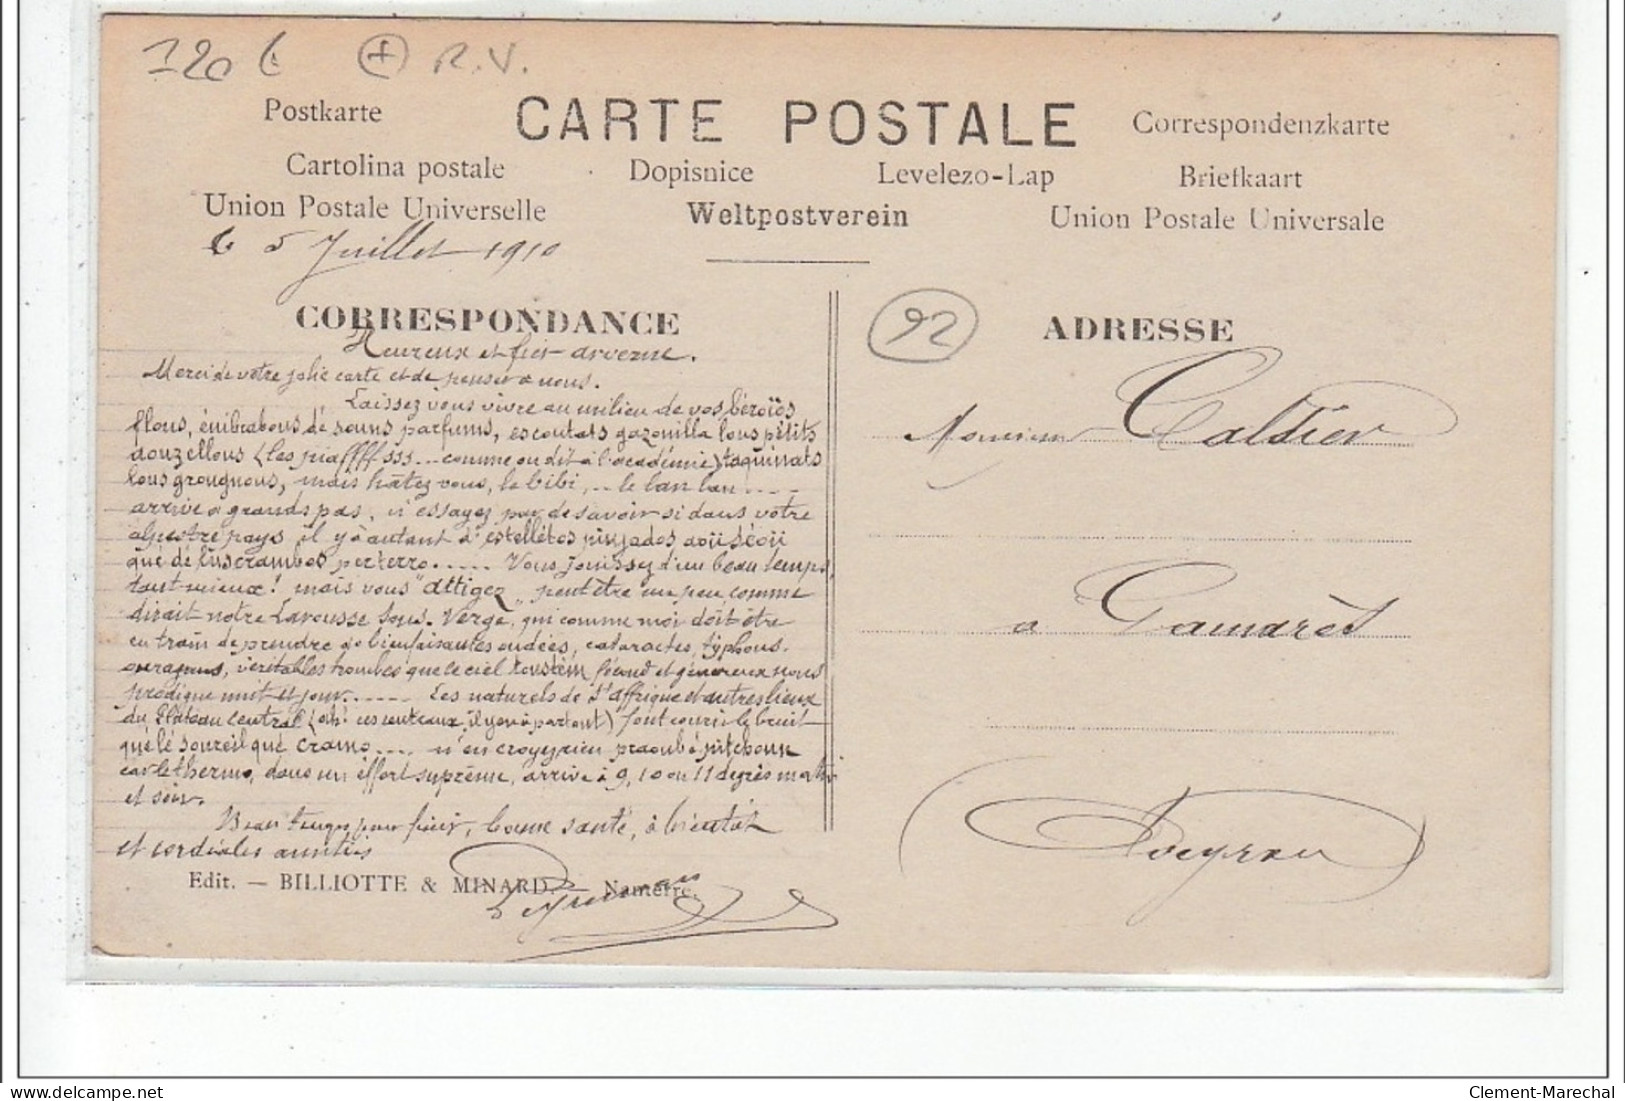 120 € + R.V.
Postkarte CARTE POSTALE Correspondenzkarte
Cartolina postale Dopisnice Levelezo-Lap Briefkaart
Union Postale Universelle Weltpostverein Union Postale Universale
le 5 Juillet 1910
CORRESPONDANCE
Heureux et fier arverne.
Merci de votre jolie carte et de penser à nous.
Laissez vous vivre au milieu de vos béroïos
flous, émbrabous dé souns parfums, escoutats gazouilla lous pétits
aouzellous (les piaffffsss... comme on dit à l'académie) taquinats
lous grougnous, mais hâtez vous, le bibi, .. le lan lan ....
arrive à grands pas, n'essayez pas de savoir si dans votre
alpestre pays il y à autant d'estellétos pinjados aoü séoü
qué dé luscrambos per terro..... Vous jouissez d'un beau temps,
tant mieux! mais vous "attigez" peut être un peu comme
dirait notre Larousse Sous. Verge, qui comme moi doit être
en train de prendre de bienfaisantes ondées, cataractes, typhons.
ouragans, véritables trombes que le ciel fécond et généreux nous
prodigue nuit et jour...... Les naturels de St affrique et autres lieux
du Plateau Central (oh! ces centeaux, il y en à partout) font courir le bruit
qué lé soureil qué cramo.... n'en croyez rien praoubé pitchoun
car le thermo, dans un effort suprême, arrive à 9, 10 ou 11 degrés matin
et soir.
Beau temps pour finir, bonne santé, à bientôt
et cordiales amitiés
Edit. — BILLIOTTE & MINARD. — Nanterre.
92
ADRESSE
Monsieur Caldier
à Camarès
Aveyron
Clement-Marechal